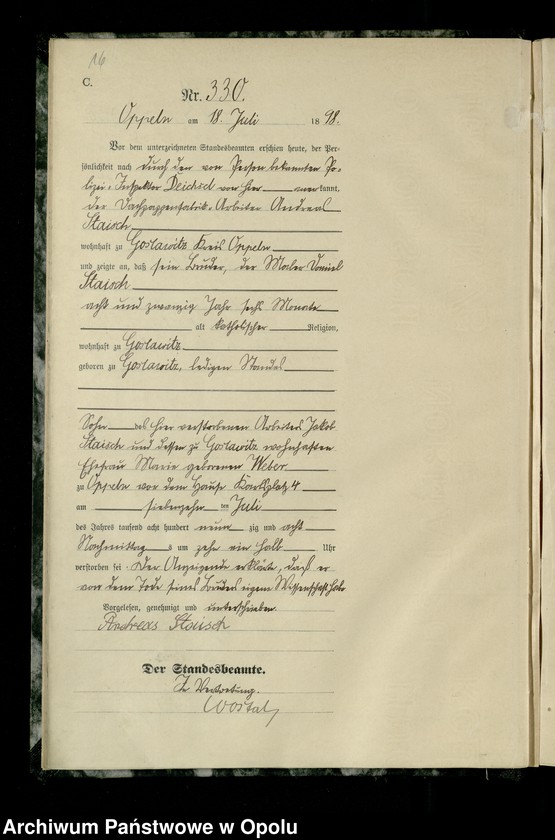 16
C.
Nr. 330.
Oppeln am 18. Juli 1898.
Vor dem unterzeichneten Standesbeamten erschien heute, der Per-
sönlichkeit nach durch den von Person bekannten Po-
lizei-Inspektor Deichsel von hier anerkannt,
der Dachpappenfabrik-Arbeiter Andreas
Staisch
wohnhaft zu Goslawitz Kreis Oppeln
und zeigte an, daß sein Bruder, der Maler Daniel
Staisch
acht und zwanzig Jahr sechs Monate
alt katholischer Religion,
wohnhaft zu Goslawitz
geboren zu Goslawitz, ledigen Standes
Sohn des hier verstorbenen Arbeiters Jakob
Staisch und dessen zu Goslawitz wohnhaften
Ehefrau Marie geborenen Weber
zu Oppeln vor dem Hause 4
am siebenzehn ten Juli
des Jahres tausend acht hundert neun zig und acht
Nachmittags um zehn ein halb Uhr
verstorben sei. Der Anzeigende erklärte, daß er
von dem Tode seines Bruders eigene Wissenschaft habe
Vorgelesen, genehmigt und unterschrieben
Andreas Staisch
Der Standesbeamte.
In Vertretung.
Wostal
Archiwum Państwowe w Opolu